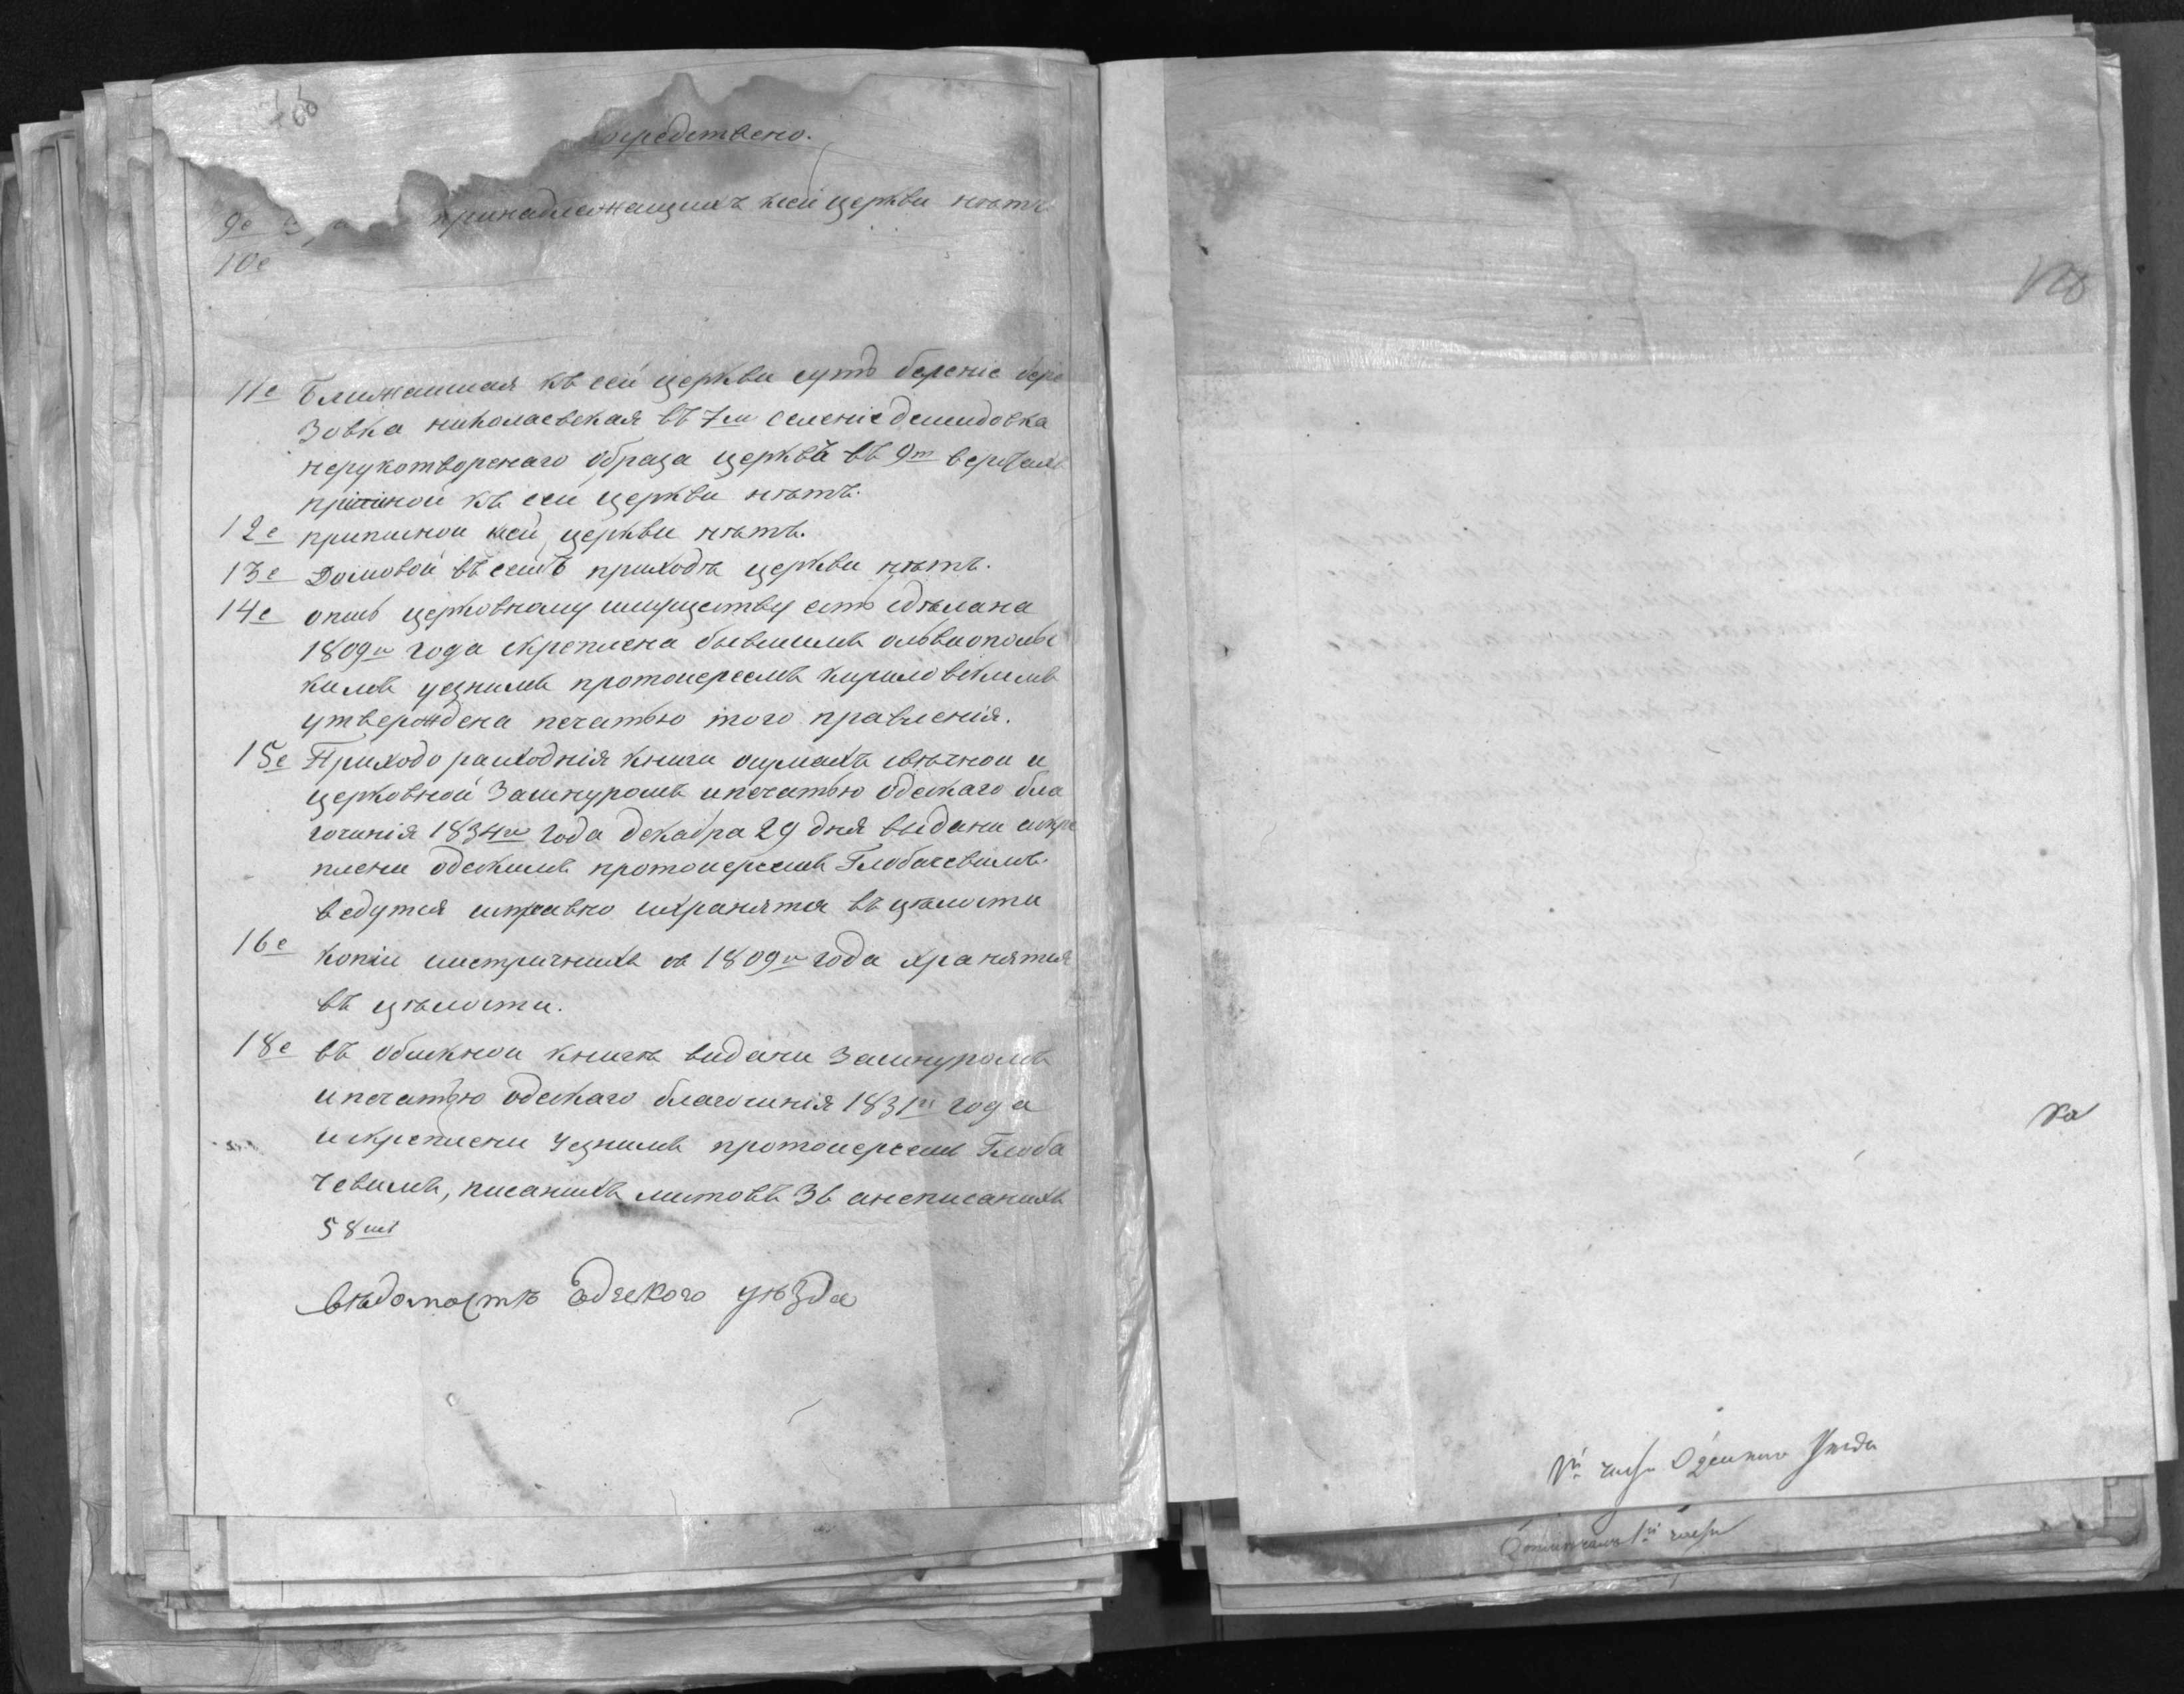 посредствено.
9е принадлежащихъ ксей церкви нѣтъ
10е
11е Ближашшая къ сей церкви суть
зовка николаевская въ 7ми селеніе демидовка
нерукотворенаго образа церквѣ въ 9т верстахъ
къ сей церкви нѣтъ.
12е приписной ксей церкви нѣтъ.
13е Домовой въ семъ приходѣ церкви нѣтъ.
14е опись церковному имуществу есть сдѣлана
1809го года скреплена бывшимъ ольвиополь
кимъ уезнимъ протоиереемъ кириловскимъ
утверждена печатью того правленія.
15е Приходо расходнія книги осумахъ свѣчной и
церковной зашнуромъ ипечатью одескаго бла
гочинія 1834го года декабра 29 дня выдани искре
плени одескимъ протоиереемъ Глобачевимъ.
ведутся исправно ихранятся въ цѣлости
16е копіи съ 1809го года хранятся
въ цѣлости.
18е въ обискной книга видани зашнуромъ
ипечатью одескаго благочинія 1831го года
искреплени уезнимъ протоиереемъ Глоба
чевимъ, писанихъ листовъ 36 анеписанихъ
58мь
вѣдомостѣ Едеского уѣзда
1й части Одескаго Уезда
1й части